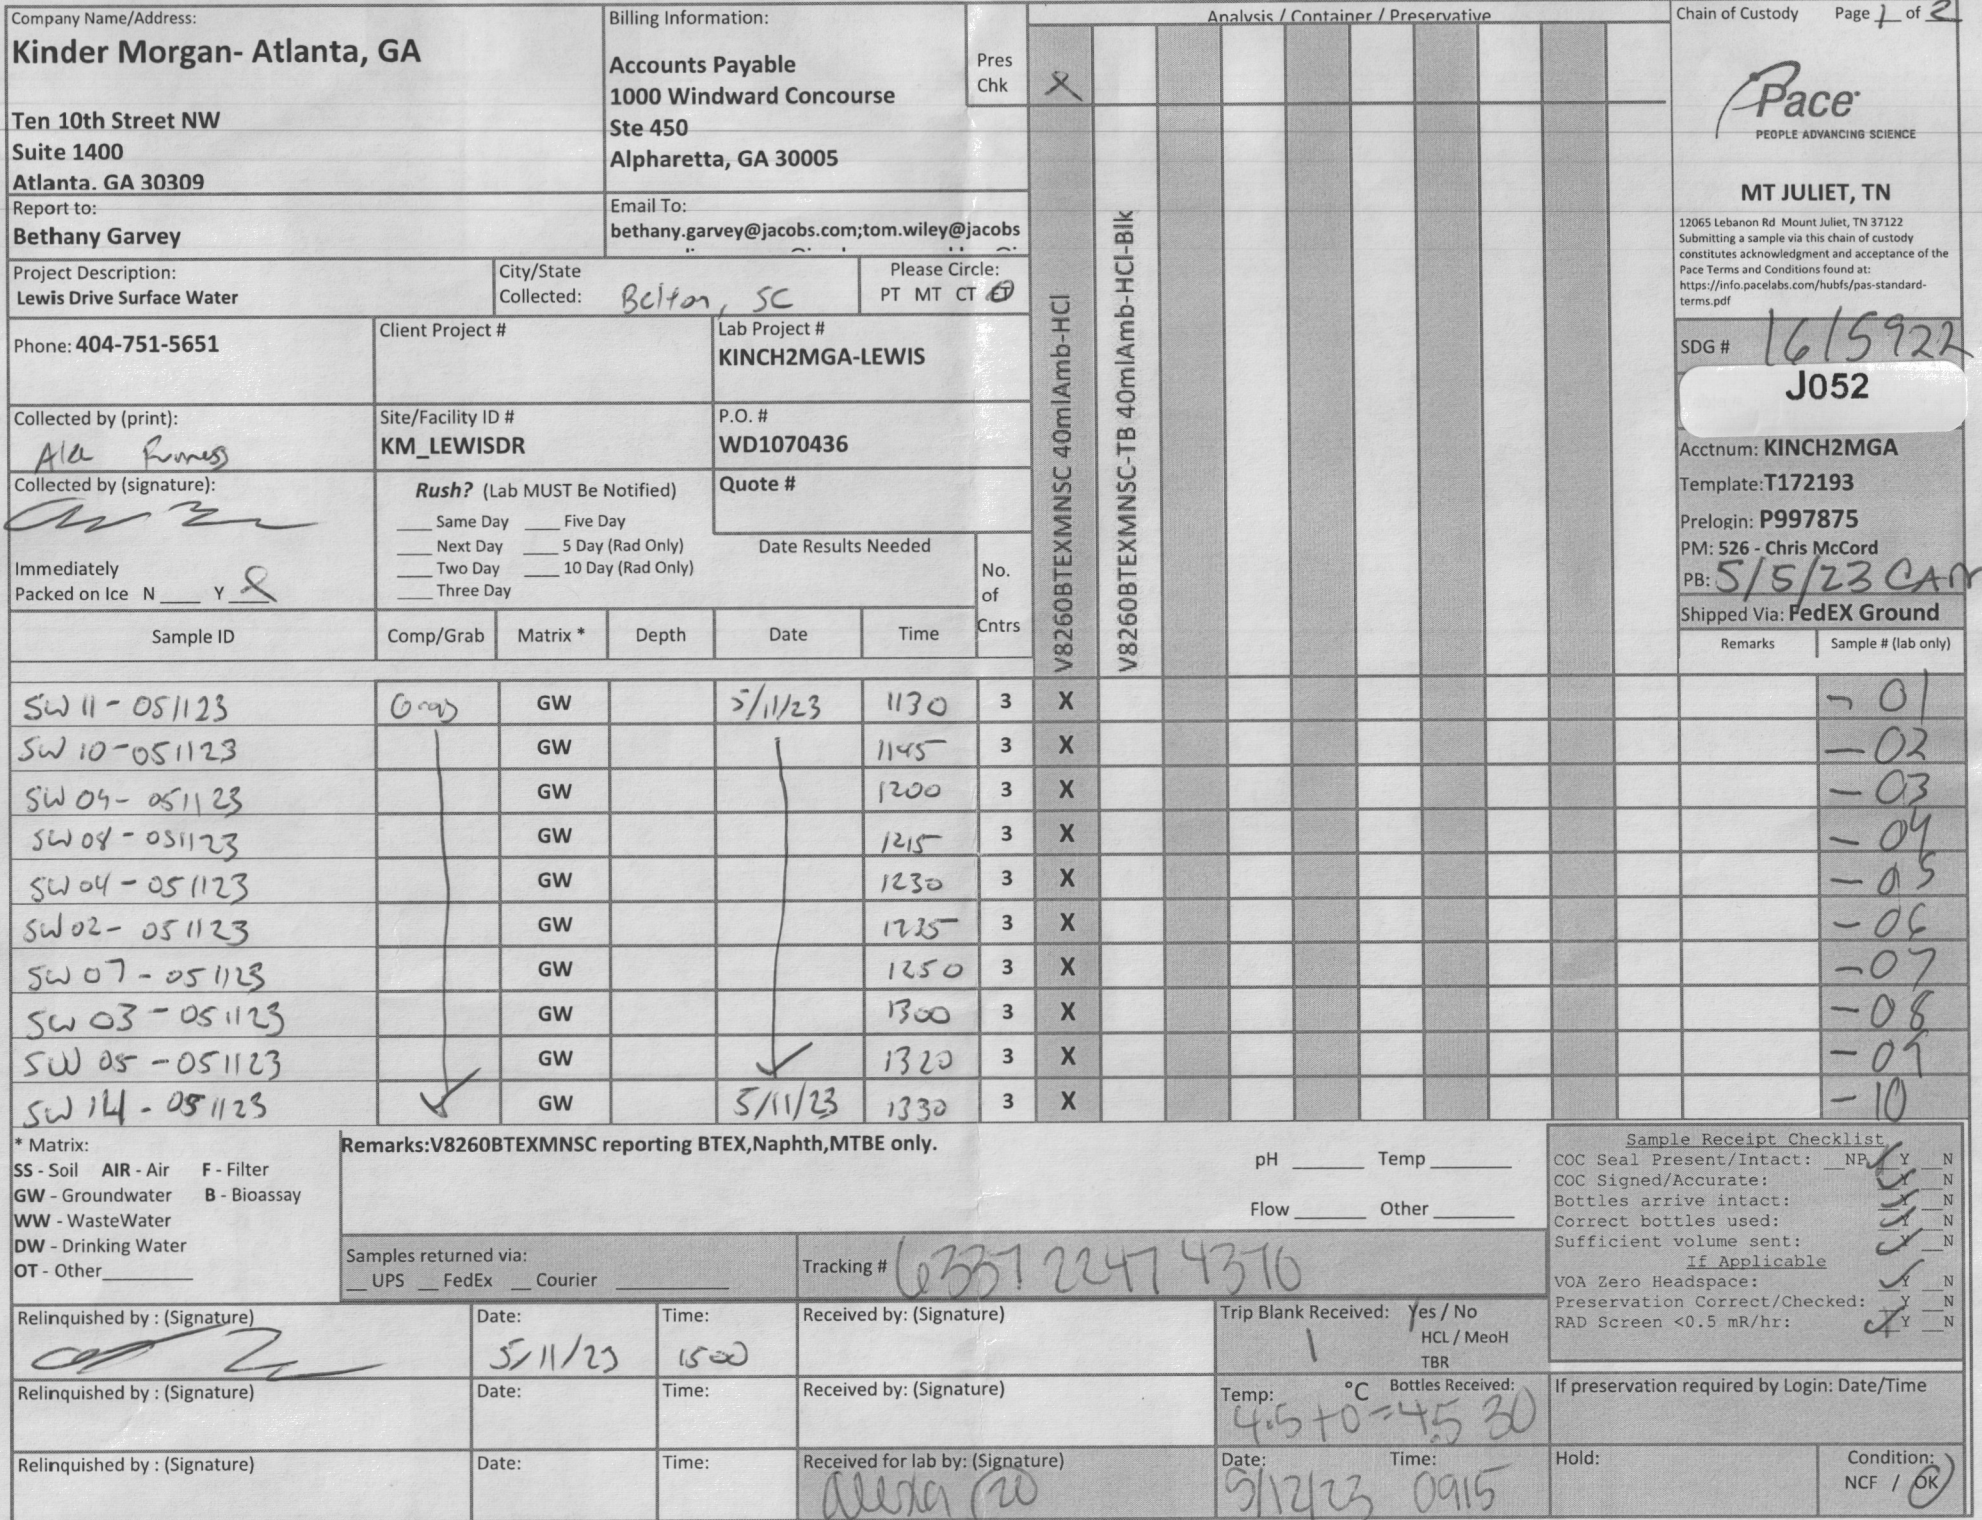 Company Name/Address:
Kinder Morgan- Atlanta, GA
Ten 10th Street NW
Suite 1400
Atlanta, GA 30309
Billing Information:
Accounts Payable
1000 Windward Concourse
Ste 450
Alpharetta, GA 30005
Pres
Chk
Analysis / Container / Preservative
Chain of Custody Page 1 of 2
Pace
PEOPLE ADVANCING SCIENCE
MT JULIET, TN
12065 Lebanon Rd Mount Juliet, TN 37122
Submitting a sample via this chain of custody
constitutes acknowledgment and acceptance of the
Pace Terms and Conditions found at:
https://info.pacelabs.com/hubfs/pas-standard-
terms.pdf
Report to:
Bethany Garvey
Email To:
bethany.garvey@jacobs.com;tom.wiley@jacobs
Project Description:
Lewis Drive Surface Water
City/State
Collected: Belton, SC
Please Circle:
PT MT CT ET
Phone: 404-751-5651
Client Project #
Lab Project #
KINCH2MGA-LEWIS
SDG # 1615922
J052
Collected by (print):
Site/Facility ID #
KM_LEWISDR
P.O. #
WD1070436
Acctnum: KINCH2MGA
Template:T172193
Prelogin: P997875
PM: 526 - Chris McCord
PB: 5/5/23 CAM
Shipped Via: FedEX Ground
Collected by (signature):
Rush? (Lab MUST Be Notified)
___ Same Day ___ Five Day
___ Next Day ___ 5 Day (Rad Only)
___ Two Day ___ 10 Day (Rad Only)
___ Three Day
Quote #
Date Results Needed
Immediately
Packed on Ice N ___ Y ___
No.
of
Cntrs
V8260BTEXMNSC 40mlAmb-HCl
V8260BTEXMNSC-TB 40mlAmb-HCl-Blk
Sample ID Comp/Grab Matrix * Depth Date Time Remarks Sample # (lab only)
SW 11 - 051123 Grab GW 5/11/23 1130 3 X - 01
SW 10 - 051123 GW 1145 3 X - 02
SW 09 - 051123 GW 1200 3 X - 03
SW 08 - 051123 GW 1215 3 X - 04
SW 04 - 051123 GW 1230 3 X - 05
SW 02 - 051123 GW 1235 3 X - 06
SW 07 - 051123 GW 1250 3 X - 07
SW 03 - 051123 GW 1300 3 X - 08
SW 05 - 051123 GW 1320 3 X - 09
SW 14 - 051123 GW 5/11/23 1330 3 X - 10
* Matrix:
SS - Soil AIR - Air F - Filter
GW - Groundwater B - Bioassay
WW - WasteWater
DW - Drinking Water
OT - Other
Remarks:V8260BTEXMNSC reporting BTEX,Naphth,MTBE only.
pH ___ Temp ___
Flow ___ Other ___
Samples returned via:
__ UPS __ FedEx __ Courier
Tracking # 6337 2247 4370
Sample Receipt Checklist
COC Seal Present/Intact: __NP __Y __N
COC Signed/Accurate: __Y __N
Bottles arrive intact: __Y __N
Correct bottles used: __Y __N
Sufficient volume sent: __Y __N
If Applicable
VOA Zero Headspace: __Y __N
Preservation Correct/Checked: __Y __N
RAD Screen <0.5 mR/hr: __Y __N
Relinquished by : (Signature)
Date: 5/11/23
Time: 1500
Received by: (Signature)
Trip Blank Received: Yes / No
1
HCL / MeoH
TBR
Relinquished by : (Signature)
Date:
Time:
Received by: (Signature)
Temp: °C Bottles Received:
4.5+0=4.5 30
If preservation required by Login: Date/Time
Relinquished by : (Signature)
Date:
Time:
Received for lab by: (Signature)
Date: 5/12/23 Time: 0915
Hold:
Condition:
NCF / OK